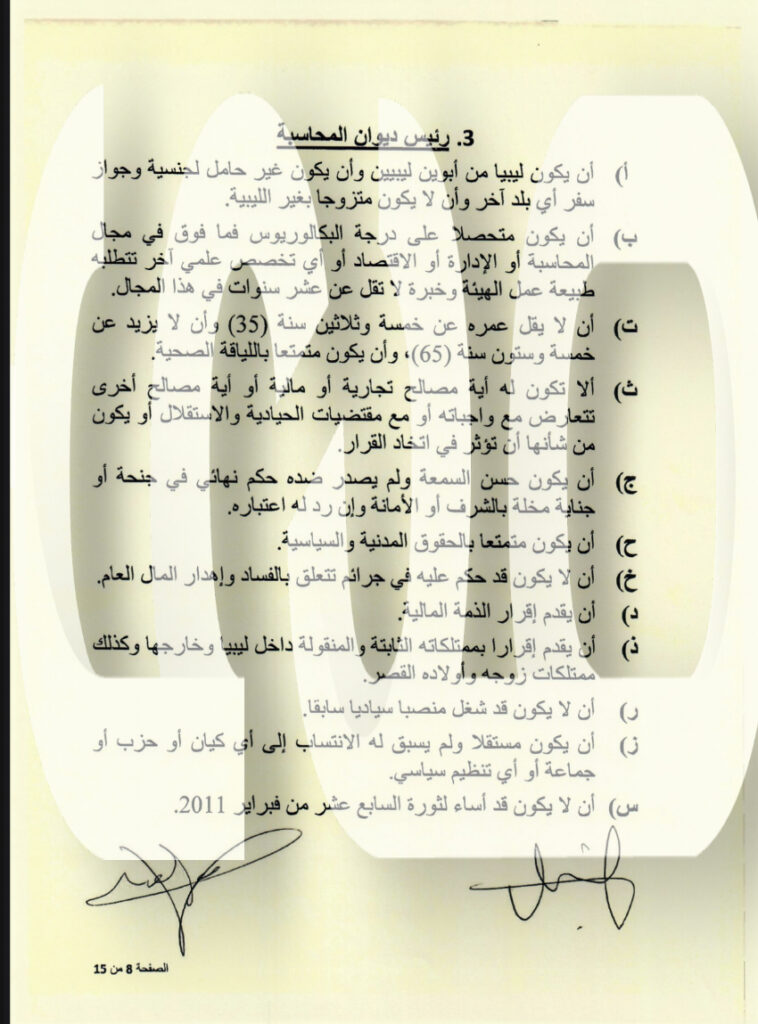 3. رئيس ديوان المحاسبة
أ) أن يكون ليبيا من أبوين ليبيين وأن يكون غير حامل لجنسية وجواز
سفر أي بلد آخر وأن لا يكون متزوجا بغير الليبية.
ب) أن يكون متحصلا على درجة البكالوريوس فما فوق في مجال
المحاسبة أو الإدارة أو الاقتصاد أو أي تخصص علمي آخر تتطلبه
طبيعة عمل الهيئة وخبرة لا تقل عن عشر سنوات في هذا المجال.
ت) أن لا يقل عمره عن خمسة وثلاثين سنة (35) وأن لا يزيد عن
خمسة وستون سنة (65)، وأن يكون متمتعا باللياقة الصحية.
ث) ألا تكون له أية مصالح تجارية أو مالية أو أية مصالح أخرى
تتعارض مع واجباته أو مع مقتضيات الحيادية والاستقلال أو يكون
من شأنها أن تؤثر في اتخاد القرار.
ج) أن يكون حسن السمعة ولم يصدر ضده حكم نهائي في جنحة أو
جناية مخلة بالشرف أو الأمانة وإن رد له اعتباره.
ح) أن يكون متمتعا بالحقوق المدنية والسياسية.
خ) أن لا يكون قد حكم عليه في جرائم تتعلق بالفساد وإهدار المال العام.
د) أن يقدم إقرار الذمة المالية.
ذ) أن يقدم إقرارا بممتلكاته الثابتة والمنقولة داخل ليبيا وخارجها وكذلك
ممتلكات زوجه وأولاده القصر.
ر) أن لا يكون قد شغل منصبا سياديا سابقا.
ز) أن يكون مستقلا ولم يسبق له الانتساب إلى أي كيان أو حزب أو
جماعة أو أي تنظيم سياسي.
س) أن لا يكون قد أساء لثورة السابع عشر من فبراير 2011.
الصفحة 8 من 15